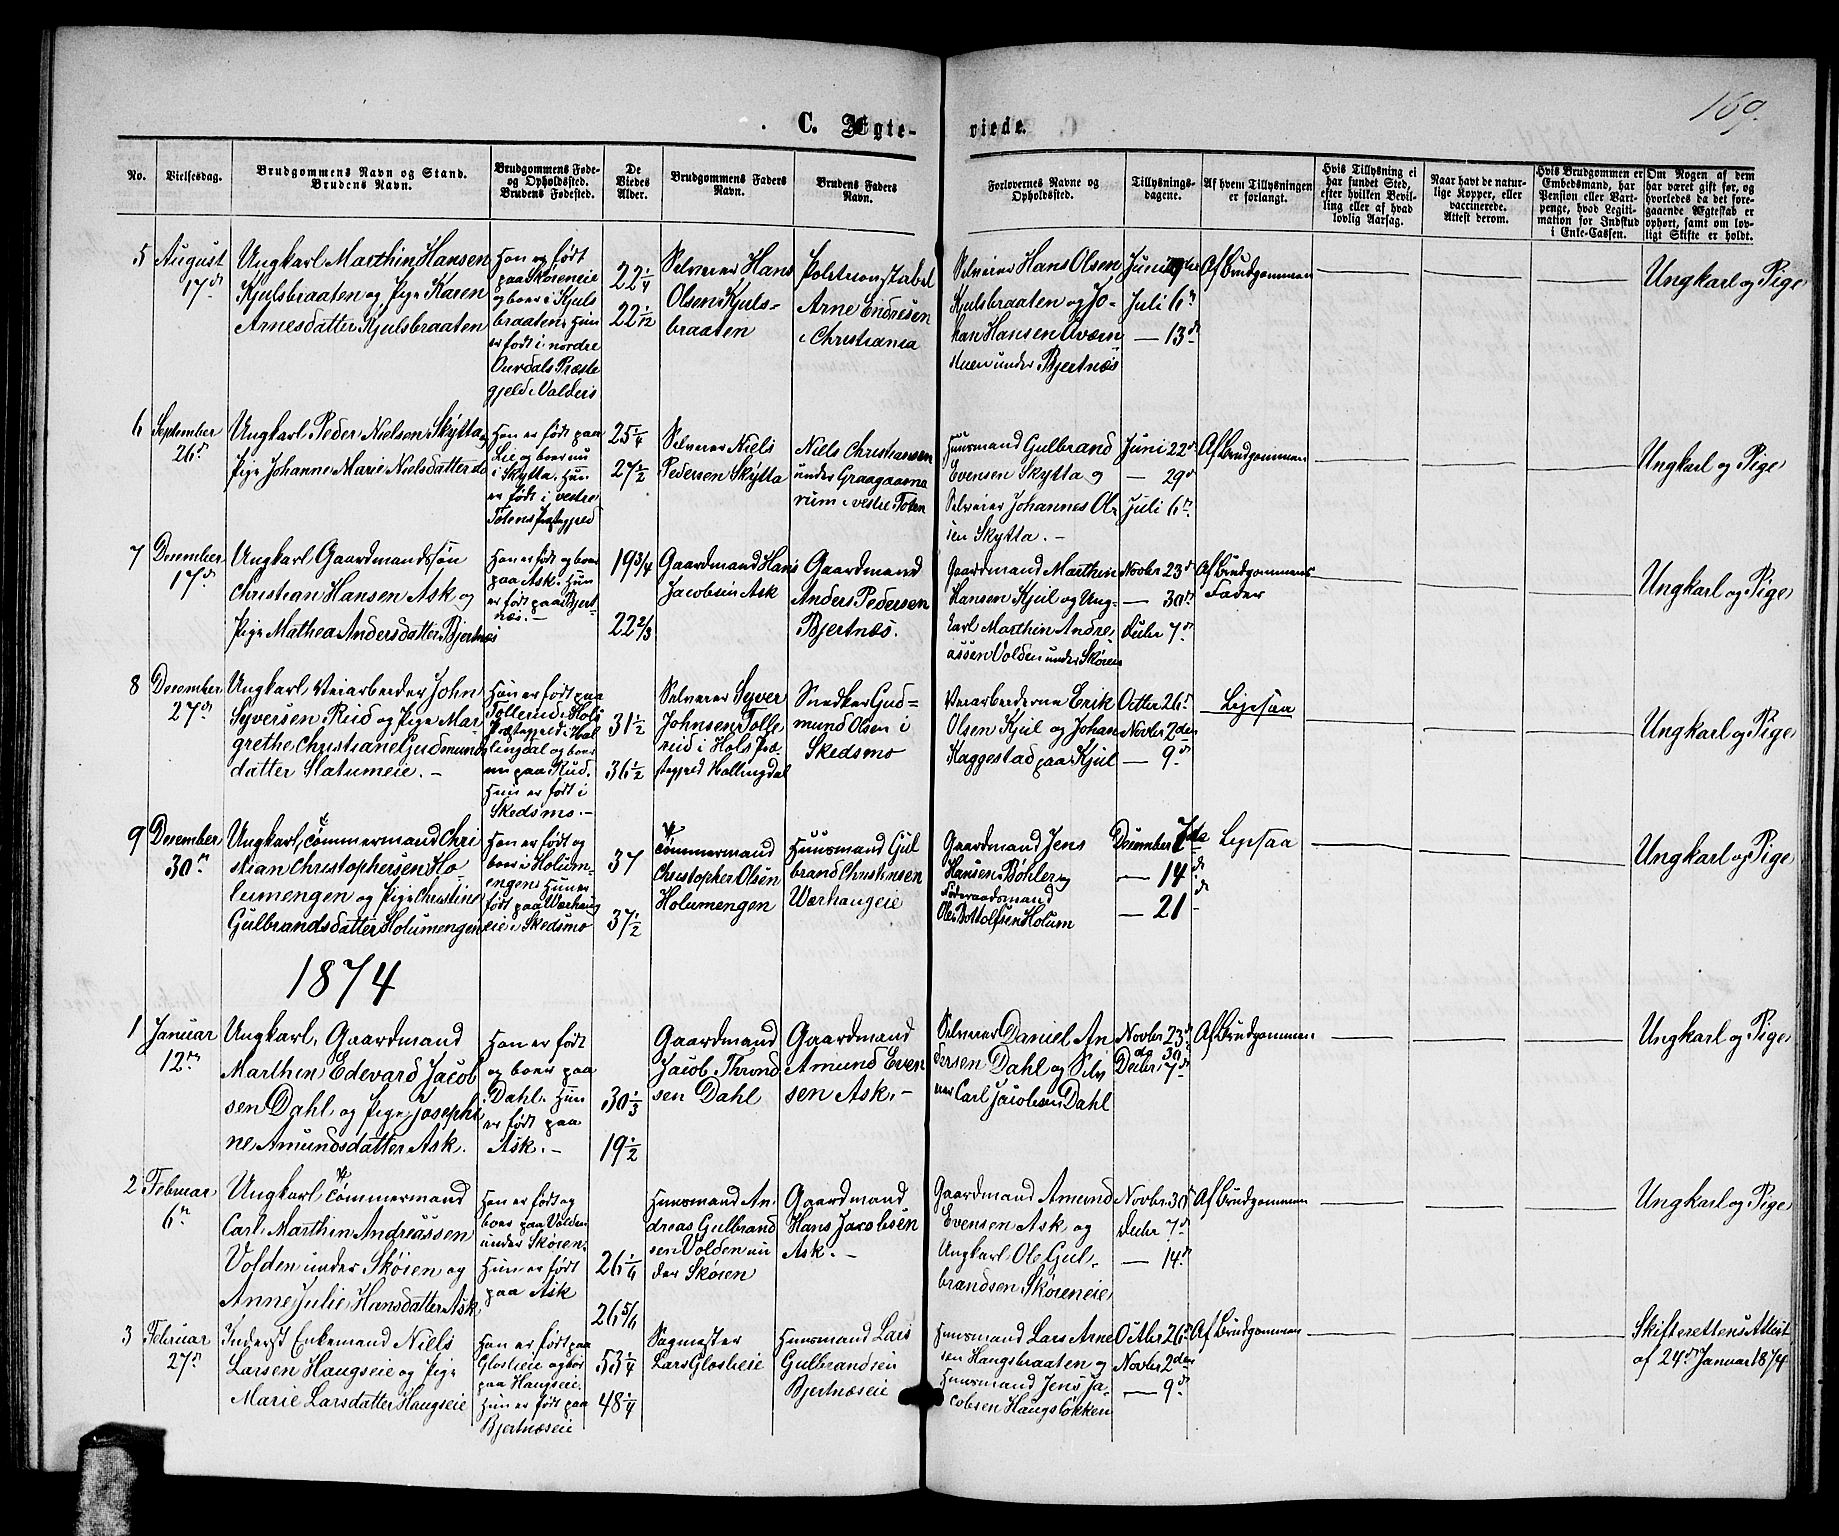 169.
C. Ægte-
viede.
No.
Vielsesdag.
Brudgommens Navn og Stand.
Brudens Navn.
Brudgommens Føde-
og Opholdssted.
Brudens Fødested.
De
Viedes
Alder.
Brudgommens Faders
Navn.
Brudens Faders
Navn.
Forlovernes Navne og
Opholdssted.
Tillysnings-
dagene.
Af hvem Tillysningen
er forlangt.
Hvis Tillysning ei
har fundet Sted,
efter hvilken Bevil-
ling eller af hvad
lovlig Aarsag.
Naar havt de natur-
lige Kopper, eller
vaccinerede.
Attest derom.
Hvis Brudgommen er
Embedsmand, har
Pension eller Vart-
penge, hvad Legiti-
mation for Indskud
i Enke-Cassen.
Om Nogen af dem
har været gift før, og
hvorledes da det fore-
gaaende Ægteskab er
ophørt, samt om lov-
ligt Skifte er holdt.
5
August
17de
Ungkarl Marthin Hansen
Kjulsbraaten og Pige Karen
Arnesdatter Kjulsbraaten
Han er født
paa Skøreneie
og boer i Kjuls
braaten. Hun
er født i nordre
Ourdals Præste
gjeld i Valders
22 1/4
22 1/12
Selveier Hans
Olsen Kjuls-
braaten
Politikonstabel
Arne Endresen
i Christiania
Selveier Hans Olsen
Kjulsbraaten og Jo-
han Hansen
under Bjertnæs
Juni
Juli 6te
— 13de
Af Brudgommen
Ungkarl og Pige
6
September
26de
Ungkarl Peder Nielsen Skytta,
Pige Johanne Marie Nielsdatter do
Han er født paa
Lie og boer nu
i Skytta. Hun
er født i vestre
Totens Præstegjeld
25 1/4
27 1/2
Selveier Niels
Pedersen Skytta
Niels Christiansen
under Graagaarna
rum i vestre Toten
Huusmand Gulbrand
Evensen Skytta og
Selveier Johannes Ol-
sen Skytta. -
Juni 22de
— 29de
Juli 6te
Af Brudgommen
Ungkarl og Pige
7
December
17de
Ungkarl Gaardmandssøn
Christian Hansen Ask og
Pige Mathea Andersdatter Bjertnæs
Han er født og boer
paa Ask. Hun
er født paa Bjert-
næs. -
19 3/4
22 2/3
Gaardmand Hans
Jacobsen Ask
Gaardmand
Anders Pedersen
Bjertnæs.
Gaardmand Marthin
Hansen Kjul og Ung-
karl Marthin Andre-
assen Volden under Skøien
Novbr 23de
— 30te
Decbr 7de
Af Brudgommens
Fader
Ungkarl og Pige
8
December
27de
Ungkarl, Veiarbeider John
Syversen Rud og Pige Mar-
grethe Christiane Gudmunds
datter Slatumeie. -
Han er født paa
Tollerud i Hols
Præstegjeld i Hal
lingdal og boer
nu paa Rud.
Hun er født i
Skedsmo. -
31 1/2
36 1/2
Selveier Syver
Johnsen Tolle
rud i Hols Præ
stegjeld Hallingdal
Snedker Gud-
mund Olsen i
Skedsmo
Veiarbeiderne Erik
Olsen Kjul og Johan
Haggestad paa Kjul
Octbr 26de
Novbr 2den
— 9de
Ligesaa
Ungkarl og Pige
9
December
30te
Ungkarl, Tømmermand Chri
stian Christophersen Ho
lumengen og Pige Christine
Gulbrandsdatter Holumengen
Han er født og
boer i Holum-
engen. Hun er
født paa Wærhaug
eie i Skedsmo
37
37 1/2
Tømmermand
Christopher Olsen
Holumengen
Huusmand Gul
brand Christensen
Wærhaugeie
Gaardmand Jens
Hansen Bøhler og
Føderaadsmand
Ole Bottolfsen Holum
December 7de
— 14de
— 21
Ligesaa
Ungkarl og Pige
1874
1
Januar
12te
Ungkarl, Gaardmand
Marthin Edevard Jacob
sen Dahl og Pige Josephi
ne Amundsdatter Ask.
Han er født
og boer paa
Dahl. Hun
er født paa
Ask. -
30 1/3
19 1/2
Gaardmand
Jacob Thrond
sen Dahl
Gaardmand
Amund Even
sen Ask. -
Selveier Daniel An
dersen Dahl og Selv
eier Carl Jacobsen Dahl
Novbr 23de
do 30
Decbr 7de
Af Brudgommen
Ungkarl og Pige
2
Februar
6te
Ungkarl Tømmermand
Carl Marthin Andreassen
Volden under Skøien og
Anne Julie Hansdatter Ask
Han er født og
boer paa Volden
under Skøien.
Hun er født
paa Ask
26 1/6
26 5/6
Huusmand An
dreas Gulbrand
sen Volden un
der Skøien
Gaardmand
Hans Jacobsen
Ask. -
Gaardmand Amund
Evensen Ask og
Ungkarl Ole Gul-
brandsen Skøieneie
Novbr 30te
Decbr 7de
— 14de
Af Brudgommen
Ungkarl og Pige
3
Februar
27de
Inderst Enkemand Niels
Larsen Haugseie og Pige
Marie Larsdatter Haugseie
Han er født paa
Glosleie og boer
paa Haugseie.
Hun er født paa
Bjertnæseie
53 1/4
48 1/4
Sagmester
Lars Glosleie
Huusmand Lars
Gulbrandsen
Bjertnæseie
Huusmand Lars Arne
sen Haugsbraaten og
Huusmand Jens Ja-
cobsen Haugsløkken
Octbr 26de
Novbr 2den
— 9de
Af Brudgommen
Skifterettens Attest
af 24de Januar 1874